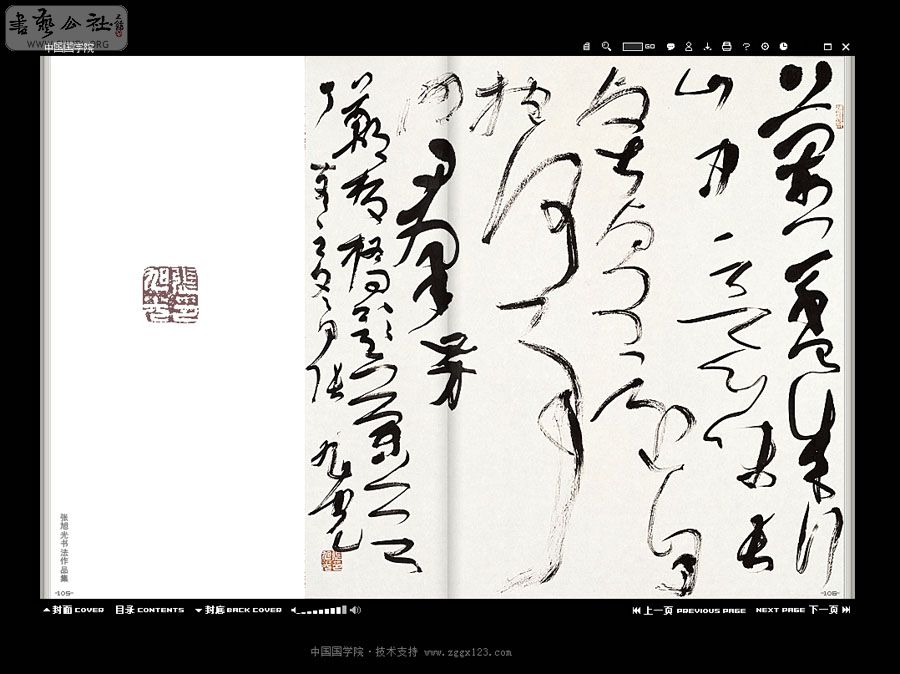 書藝公社
WWW.SHUFA.ORG
中国国学院
GO
蘭草已成行
山中意味長
堅貞還自
抱何事
鬥群芳
鄭板橋
張旭光
张旭光书法作品集
-105-
-106-
封面 COVER 目录 CONTENTS 封底 BACK COVER
上一页 PREVIOUS PAGE NEXT PAGE 下一页
中国国学院·技术支持 www.zggx123.com